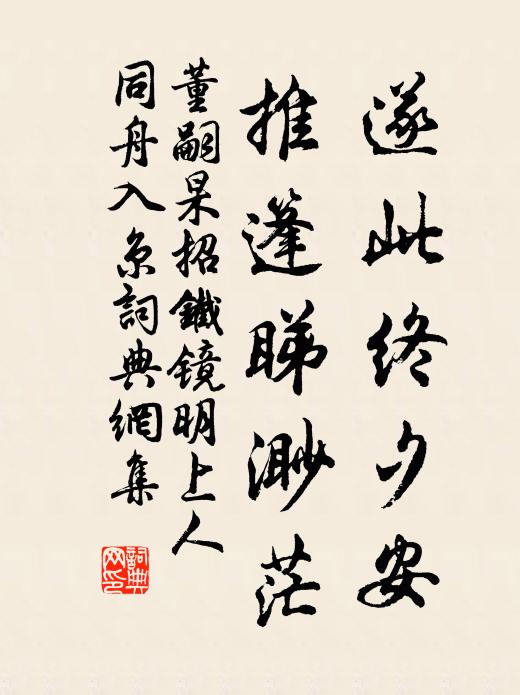 遂此终夕安
推篷睇渺茫
董嗣杲招鐵镜明上人
同舟入京詞典網集
詞典网印